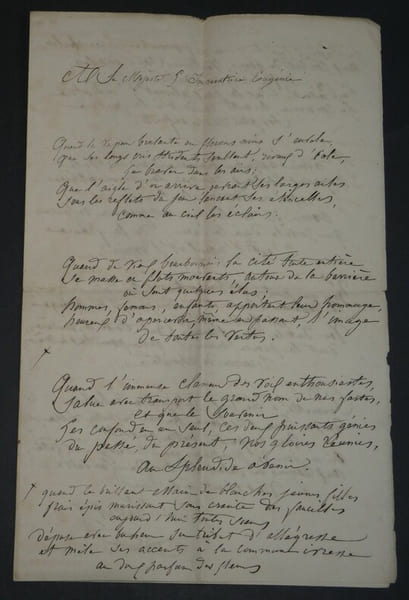 A Sa Majesté l'Impératrice Eugénie
Quand la vapeur brûlante en flocons noirs s'envole
Que ses longs cris stridents
Se perdre dans les airs;
Que l'aigle d'or arrive ses larges ailes
Sous les reflets de feu lancent ses étincelles,
Comme au ciel les éclairs.
Quand du vieil Bourbonnais la cité toute entière
Se masse en flots mouvants, autour de la barrière
où sont quelques élus;
hommes, femmes, enfants, apportent leur hommage,
heureux d'apercevoir, même en passant, l'image
De toutes les vertus.
x
Quand l'immense clameur des voix enthousiastes,
Salue avec transport le grand nom de nos fastes,
Et que le Souvenir
Les confond en un seul, ces deux puissants génies
du passé, du présent, nos gloires réunies,
au splendide avenir.
x quand le brillant essaim de blanches jeunes filles
frais épis murissant sans crainte des faucilles
aujourd'hui toutes
dépose avec son tribut d'allégresse
et mêle ses accents à la commune ivresse
au doux parfum des fleurs